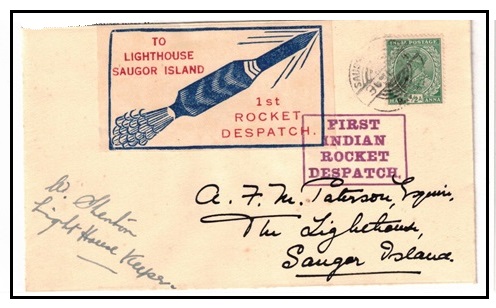 TO
LIGHTHOUSE
SAUGOR ISLAND
1st
ROCKET
DESPATCH.
ANNA
FIRST
INDIAN
ROCKET
DESPATCH.
A. F. M. Paterson, Esquire,
The Lighthouse,
Saugor Island.
W
Light House Keeper.